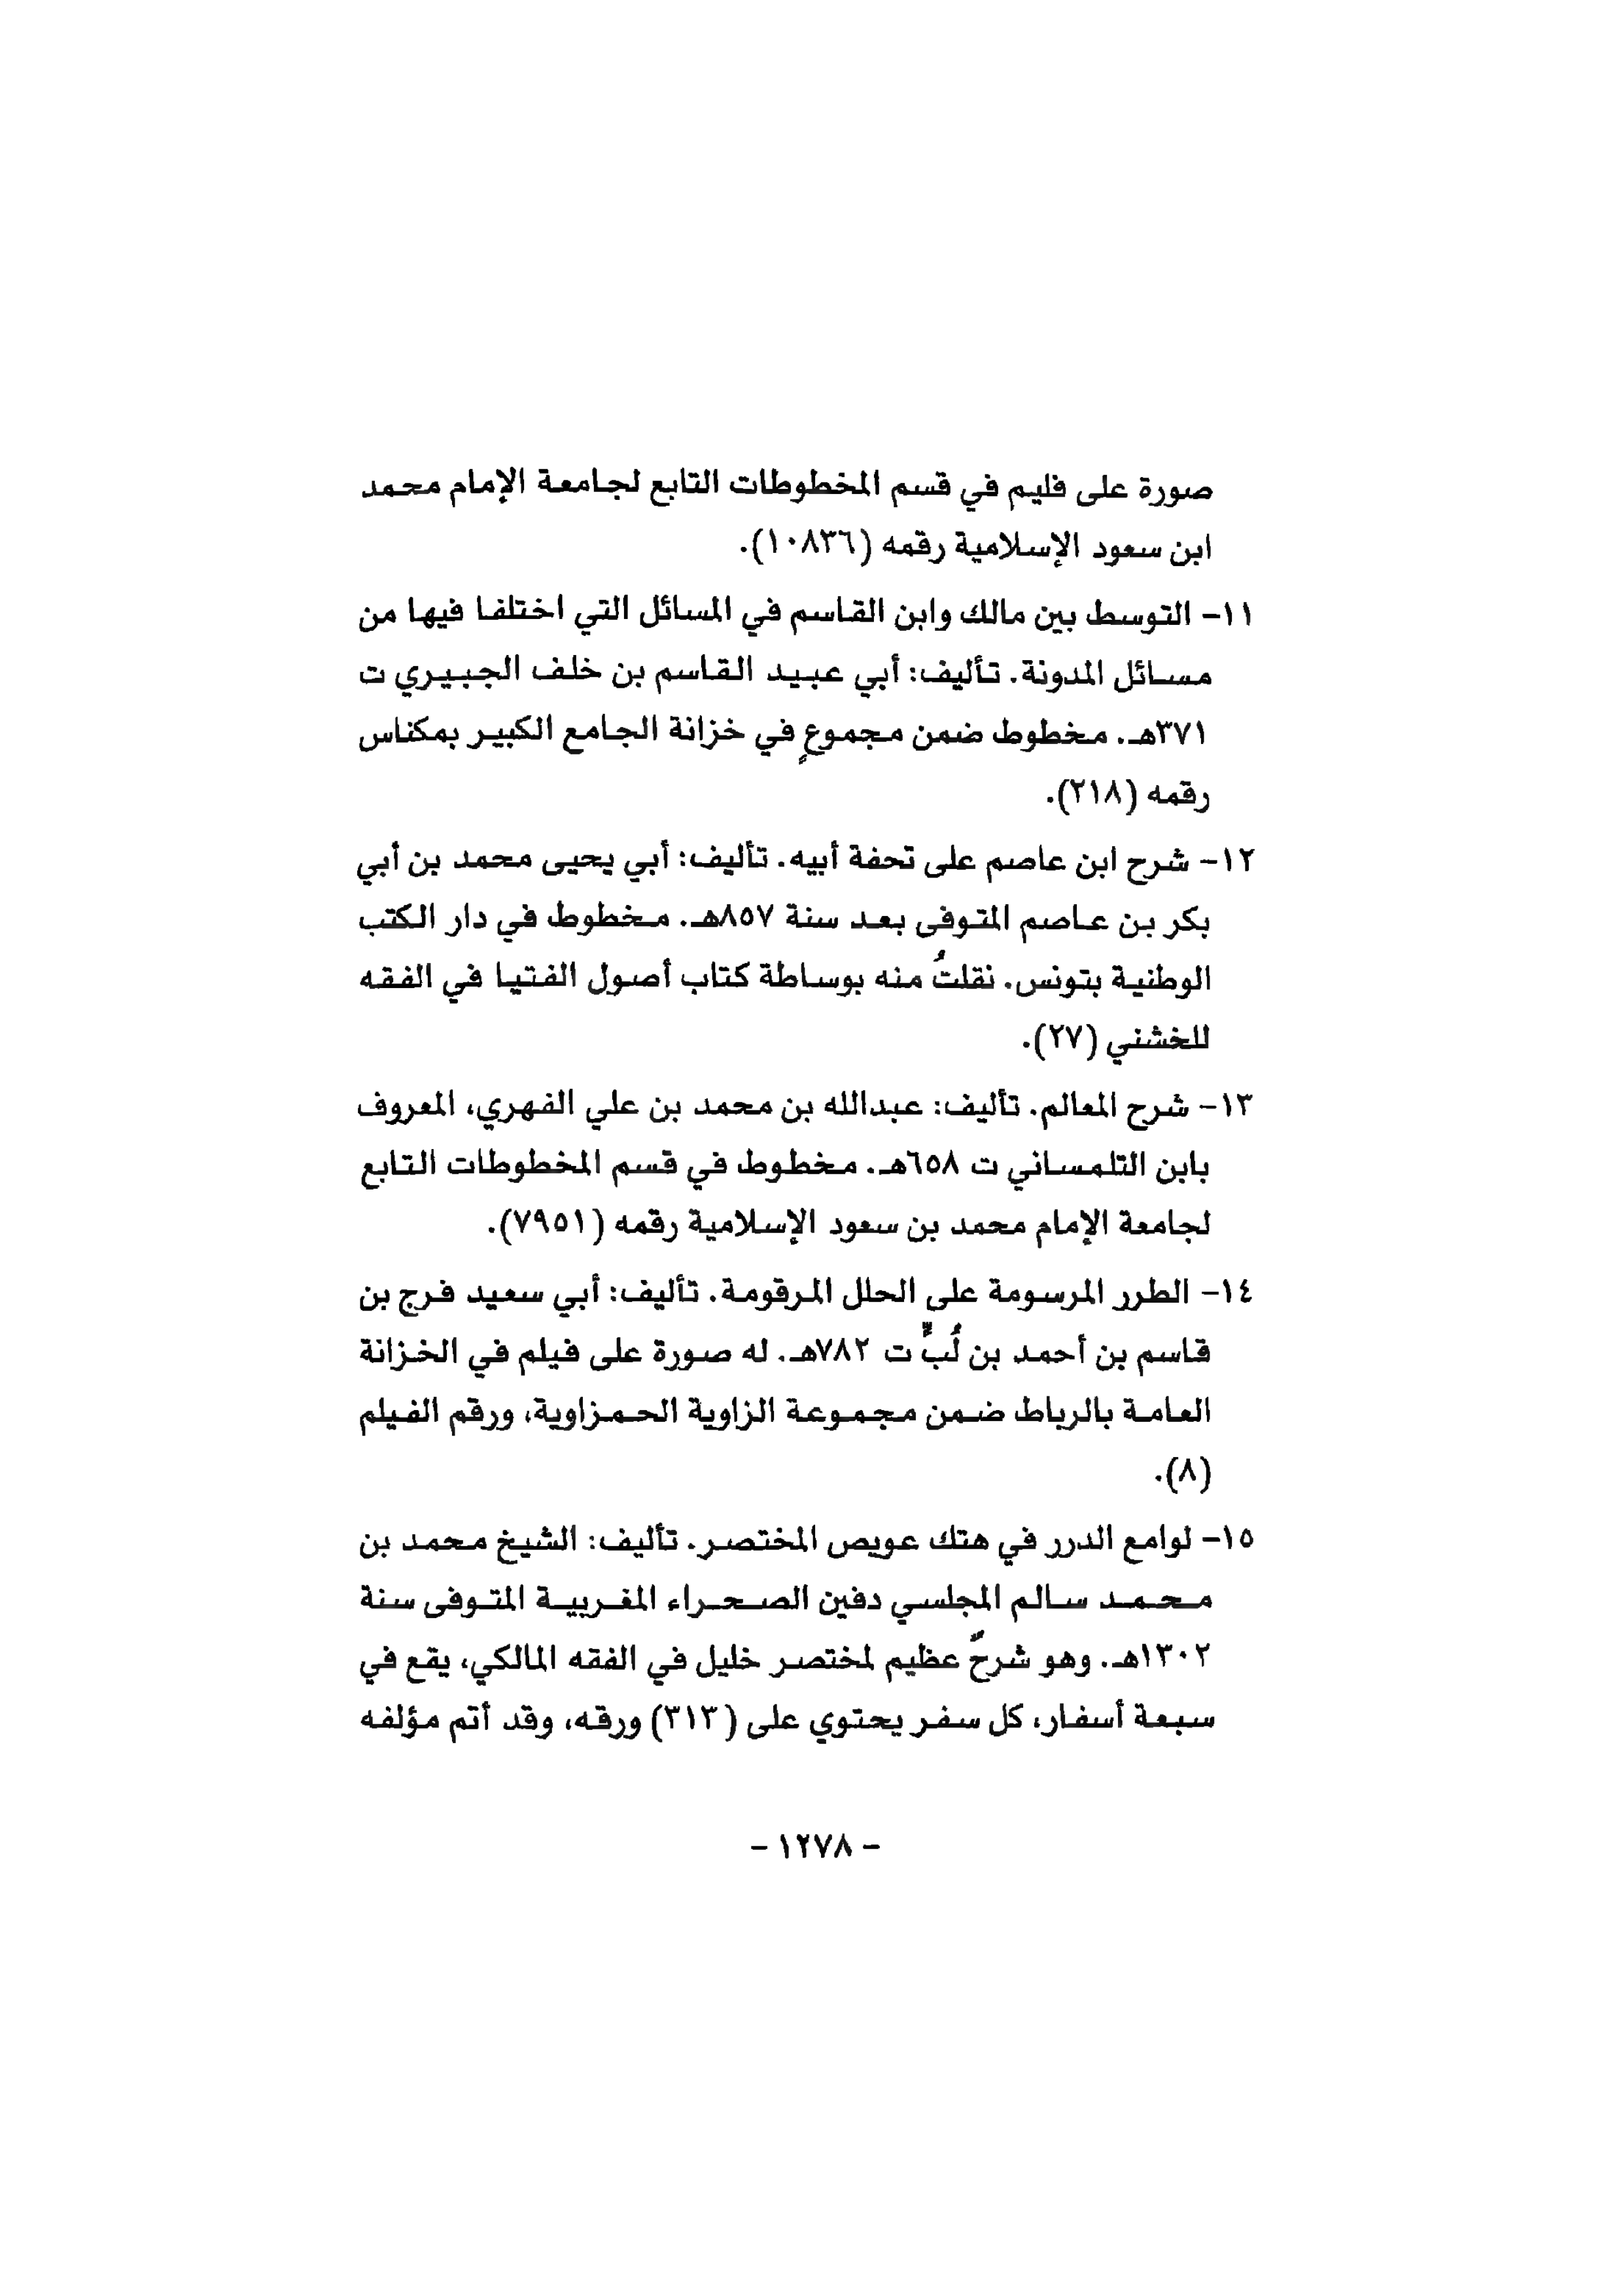 صورة على فليم في قسم المخطوطات التابع لجامعة الإمام محمد
ابن سعود الإسلامية رقمه (١٠٨٣٦).
١١- التوسط بين مالك وابن القاسم في المسائل التي اختلفا فيها من
مسائل المدونة. تأليف: أبي عبيد القاسم بن خلف الجبيري ت
٣٧١هـ. مخطوط ضمن مجموعٍ في خزانة الجامع الكبير بمكناس
رقمه (٢١٨).
١٢- شرح ابن عاصم على تحفة أبيه. تأليف: أبي يحيى محمد بن أبي
بكر بن عاصم المتوفى بعد سنة ٨٥٧هـ. مخطوط في دار الكتب
الوطنية بتونس. نقلتُ منه بوساطة كتاب أصول الفتيا في الفقه
للخشني (٢٧).
١٣- شرح المعالم. تأليف: عبدالله بن محمد بن علي الفهري، المعروف
بابن التلمساني ت ٦٥٨هـ. مخطوط في قسم المخطوطات التابع
لجامعة الإمام محمد بن سعود الإسلامية رقمه (٧٩٥١).
١٤- الطرر المرسومة على الحلل المرقومة. تأليف: أبي سعيد فرج بن
قاسم بن أحمد بن لُبٍّ ت ٧٨٢هـ. له صورة على فيلم في الخزانة
العامة بالرباط ضمن مجموعة الزاوية الحمزاوية، ورقم الفيلم
(٨).
١٥- لوامع الدرر في هتك عويص المختصر. تأليف: الشيخ محمد بن
محمد سالم المجلسي دفين الصحراء المغربية المتوفى سنة
١٣٠٢هـ. وهو شرحٌ عظيم لمختصر خليل في الفقه المالكي، يقع في
سبعة أسفار، كل سفر يحتوي على (٣١٣) ورقه، وقد أتم مؤلفه
- ١٢٧٨ -